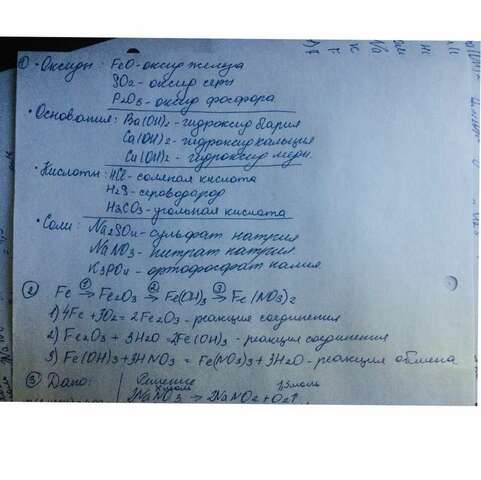 ① • Оксиды: FeO - оксид железа
SO2 - оксид серы
P2O3 - оксид фосфора
• Основания: Ba(OH)2 - гидроксид бария
Ca(OH)2 - гидроксид кальция
Cu(OH)2 - гидроксид меди
• Кислоты: HCl - соляная кислота
H2S - сероводород
H2CO3 - угольная кислота
• Соли: Na2SO4 - сульфат натрия
NaNO3 - нитрат натрия
K3PO4 - ортофосфат калия
② Fe ①→ Fe2O3 ②→ Fe(OH)3 ③→ Fe(NO3)2
1) 4Fe + 3O2 = 2Fe2O3 - реакция соединения
2) Fe2O3 + 3H2O = 2Fe(OH)3 - реакция соединения
3) Fe(OH)3 + 3HNO3 = Fe(NO3)3 + 3H2O - реакция обмена
③ Дано: Решение
xмоль 1,5моль
2NaNO3 → 2NaNO2 + O2↑